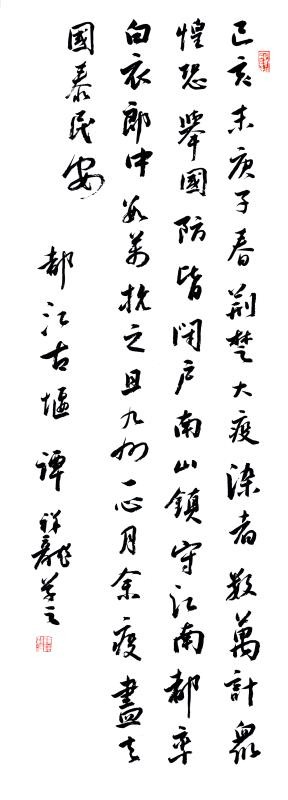 己亥末庚子春荆楚大疫染者数萬計眾
惶恐舉國防皆閉户南山鎮守江南都率
白衣郎中数萬抗之且九州一心月余疫盡去
國泰民安
都江古堰 譚祥龍